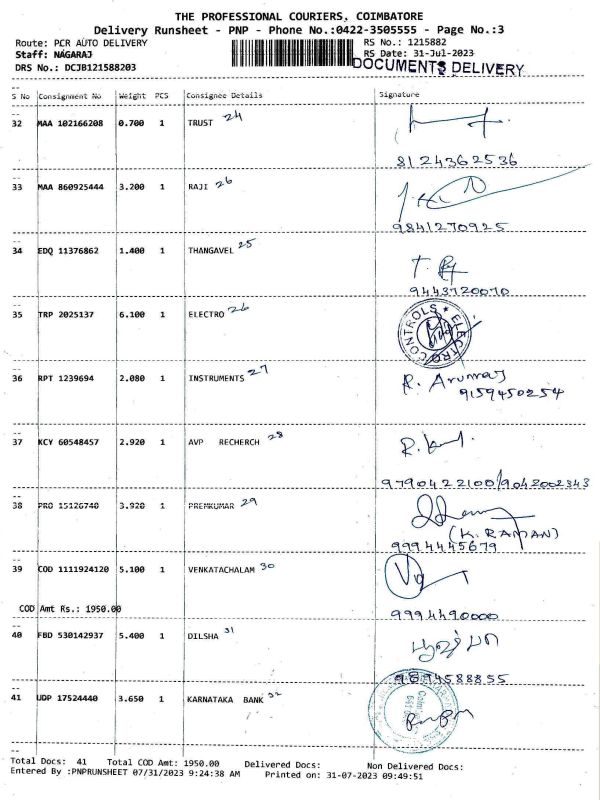 THE PROFESSIONAL COURIERS, COIMBATORE
Delivery Runsheet - PNP - Phone No.:0422-3505555 - Page No.:3
Route: PCR AUTO DELIVERY RS No.: 1215882
Staff: NAGARAJ RS Date: 31-Jul-2023
DRS No.: DCJB121588203 DOCUMENTS DELIVERY
S No Consignment No Weight PCS Consignee Details Signature
32 MAA 102166208 0.700 1 TRUST 24
8124362536
33 MAA 860925444 3.200 1 RAJI 26
9841270925
34 EDQ 11376862 1.400 1 THANGAVEL 25
9443720070
35 TRP 2025137 6.100 1 ELECTRO 26
CONTROLS ★ ELECTRO
36 RPT 1239694 2.080 1 INSTRUMENTS 27
R. Arunraj
9159450254
37 KCY 60548457 2.920 1 AVP RECHERCH 28
9790422100/9042002343
38 PRO 15126740 3.920 1 PREMKUMAR 29
(K. RAMAN)
9994445679
39 COD 1111924120 5.100 1 VENKATACHALAM 30
COD Amt Rs.: 1950.00
9994490000
40 FBD 530142937 5.400 1 DILSHA 31
9894588855
41 UDP 17524440 3.650 1 KARNATAKA BANK 32
Total Docs: 41 Total COD Amt: 1950.00 Delivered Docs: Non Delivered Docs:
Entered By :PNPRUNSHEET 07/31/2023 9:24:38 AM Printed on: 31-07-2023 09:49:51